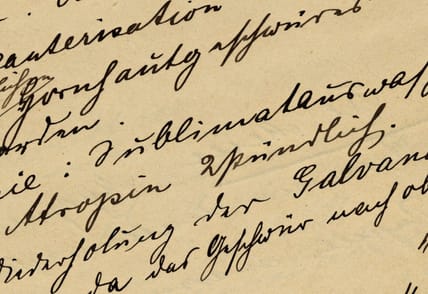 Cauterisation
Hornhautgeschwüres
orden.
ie: Sublimatauswasch
Atropin 2stündlich.
Wiederholung der Galvano
da das Geschwür nach ob